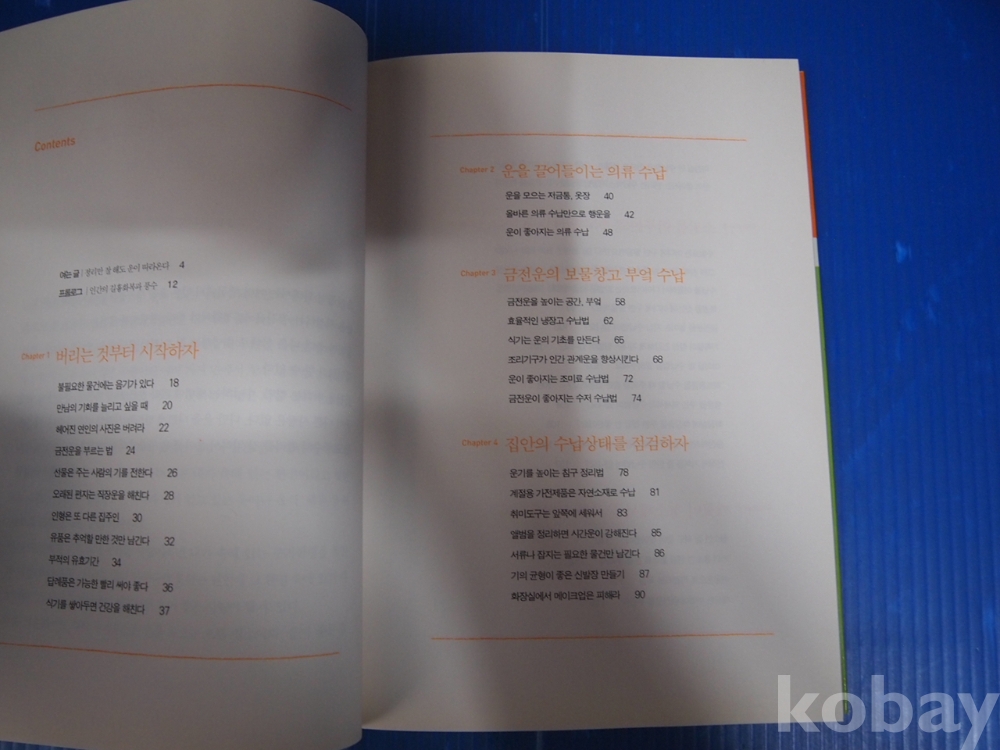 Contents
여는 글 | 정리만 잘 해도 운이 따라온다 4
프롤로그 | 인간의 길흉화복과 풍수 12
Chapter 1 버리는 것부터 시작하자
불필요한 물건에는 음기가 있다 18
만남의 기회를 늘리고 싶을 때 20
헤어진 연인의 사진은 버려라 22
금전운을 부르는 법 24
선물은 주는 사람의 기를 전한다 26
오래된 편지는 직장운을 해친다 28
인형은 또 다른 집주인 30
유품은 추억할 만한 것만 남긴다 32
부적의 유효기간 34
답례품은 가능한 빨리 써야 좋다 36
식기를 쌓아두면 건강을 해친다 37
Chapter 2 운을 끌어들이는 의류 수납
운을 모으는 저금통, 옷장 40
올바른 의류 수납만으로 행운을 42
운이 좋아지는 의류 수납 48
Chapter 3 금전운의 보물창고 부엌 수납
금전운을 높이는 공간, 부엌 58
효율적인 냉장고 수납법 62
식기는 운의 기초를 만든다 65
조리기구가 인간 관계운을 향상시킨다 68
운이 좋아지는 조미료 수납법 72
금전운이 좋아지는 수저 수납법 74
Chapter 4 집안의 수납상태를 점검하자
운기를 높이는 침구 정리법 78
계절용 가전제품은 자연소재로 수납 81
취미도구는 앞쪽에 세워서 83
앨범을 정리하면 시간운이 강해진다 85
서류나 잡지는 필요한 물건만 남긴다 86
기의 균형이 좋은 신발장 만들기 87
화장실에서 메이크업은 피해라 90
kobay